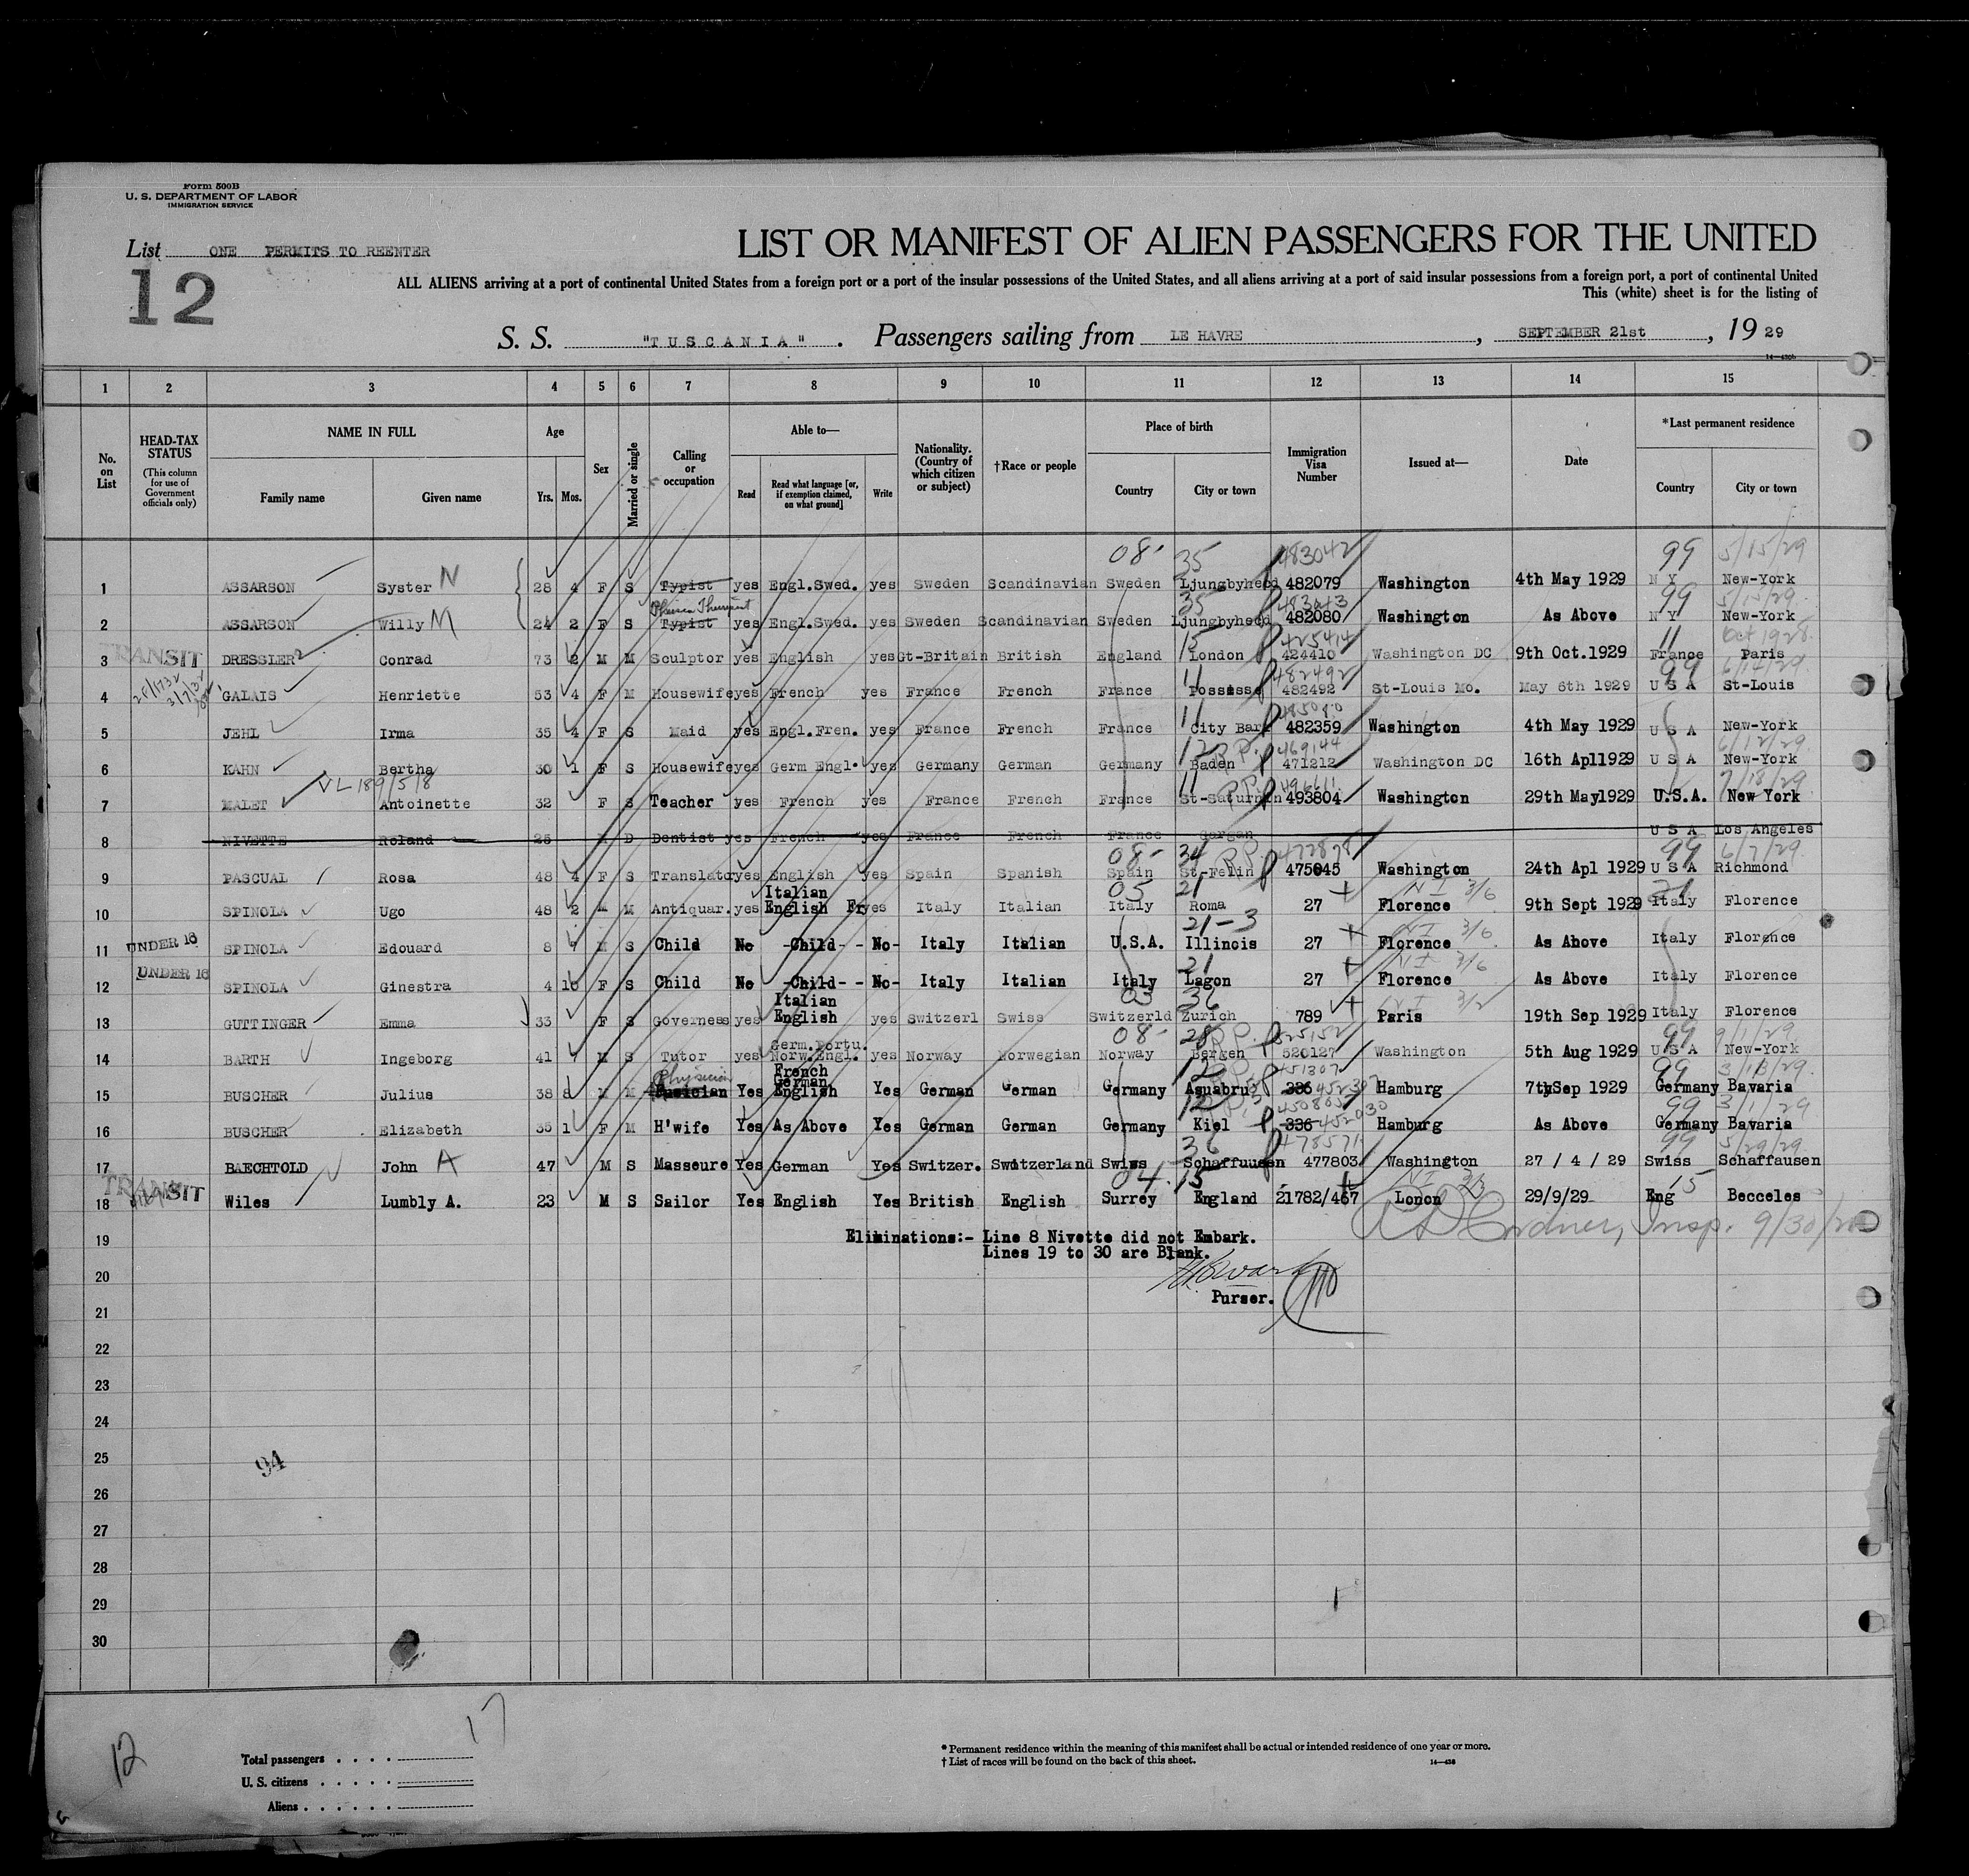 Form 500B
U. S. DEPARTMENT OF LABOR
IMMIGRATION SERVICE
List ONE PERMITS TO REENTER
12
LIST OR MANIFEST OF ALIEN PASSENGERS FOR THE UNITED
ALL ALIENS arriving at a port of continental United States from a foreign port or a port of the insular possessions of the United States, and all aliens arriving at a port of said insular possessions from a foreign port, a port of continental United
This (white) sheet is for the listing of
S. S. "TUSCANIA". Passengers sailing from LE HAVRE, SEPTEMBER 21st, 19 29
1 2 3 4 5 6 7 8 9 10 11 12 13 14 15
No. on List
HEAD-TAX STATUS (This column for use of Government officials only)
NAME IN FULL Family name Given name
Age Yrs. Mos.
Sex
Married or single
Calling or occupation
Able to— Read Read what language [or, if exemption claimed, on what ground] Write
Nationality. (Country of which citizen or subject)
†Race or people
Place of birth Country City or town
Immigration Visa Number
Issued at—
Date
*Last permanent residence Country City or town
08- 35 483042 99 5/15/29
1 ASSARSON Syster N 28 4 F S Typist yes Engl.Swed. yes Sweden Scandinavian Sweden Ljungbyhed 482079 Washington 4th May 1929 N Y New-York
35 483043 99 5/15/29
2 ASSARSON Willy M 24 2 F S Typist yes Engl.Swed. yes Sweden Scandinavian Sweden Ljungbyhed 482080 Washington As Above N Y New-York
15 425414 11 Oct 1928
3 TRANSIT DRESSLER Conrad 73 2 M M Sculptor yes English yes Gt-Britain British England London 424410 Washington DC 9th Oct.1929 France Paris
11 482492 99 6/14/29
4 GALAIS Henriette 53 4 F M Housewife yes French yes France French France Possesse 482492 St-Louis Mo. May 6th 1929 U S A St-Louis
11
5 JEHL Irma 35 4 F S Maid yes Engl.Fren. yes France French France City Bar 482359 Washington 4th May 1929 U S A New-York
12 P.P. 469144 6/12/29
6 KAHN Bertha 30 1 F S Housewife yes Germ Engl. yes Germany German Germany Baden 471212 Washington DC 16th Apl1929 U S A New-York
VL 189/5/8 11 P.P. 496611 7/18/29
7 MALET Antoinette 32 F S Teacher yes French yes France French France St-Saturnin 493804 Washington 29th May1929 U.S.A. New York
8 NIVETTE Roland 25 M D Dentist yes French yes France French France Gargan U S A Los Angeles
08- 34 P.P. 472878 99 6/7/29
9 PASCUAL Rosa 48 4 F S Translato yes English yes Spain Spanish Spain St-Felin 475045 Washington 24th Apl 1929 U S A Richmond
05 21 NI 3/6 21
10 SPINOLA Ugo 48 2 M M Antiquar. yes Italian English Fr yes Italy Italian Italy Roma 27 Florence 9th Sept 1929 Italy Florence
21-3 NI 3/6
11 UNDER 16 SPINOLA Edouard 8 7 M S Child No -Child- - No- Italy Italian U.S.A. Illinois 27 Florence As Above Italy Florence
21 NI 3/6
12 UNDER 16 SPINOLA Ginestra 4 10 F S Child No -Child- - No- Italy Italian Italy Lagon 27 Florence As Above Italy Florence
03 36 NI 3/2
13 GUTTINGER Emma 33 F S Governess yes Italian English yes Switzerl Swiss Switzerld Zurich 789 Paris 19th Sep 1929 Italy Florence
08- 28 P.P. 525152 99 9/1/29
14 BARTH Ingeborg 41 7 M S Tutor yes Germ.Portu. Norw.Engl. yes Norway Norwegian Norway Bergen 520127 Washington 5th Aug 1929 U S A New-York
Physician 12 451307 99 3/13/29
15 BUSCHER Julius 38 8 M M Yes French German English Yes German German Germany Asnabrug 336 452307 Hamburg 7th Sep 1929 Germany Bavaria
12 99 3/1/29
16 BUSCHER Elizabeth 35 1 F M H'wife Yes As Above Yes German German Germany Kiel 336 452030 Hamburg As Above Germany Bavaria
36 478571 99 5/29/29
17 BAECHTOLD John A 47 M S Masseure Yes German Yes Switzer. Switzerland Swiss Schaffausen 477803 Washington 27 / 4 / 29 Swiss Schaffausen
04. 15 NI 3/3 15
18 TRANSIT Wiles Lumbly A. 23 M S Sailor Yes English Yes British English Surrey England 21782/467 Lonon 29/9/29 Eng Becceles
Insp. 9/30/29
19 Eliminations:- Line 8 Nivette did not Embark.
Lines 19 to 30 are Blank.
20
Purser.
21
22
23
24
25
94
26
27
28
29
30
17
12
Total passengers
U. S. citizens
Aliens
* Permanent residence within the meaning of this manifest shall be actual or intended residence of one year or more.
† List of races will be found on the back of this sheet.